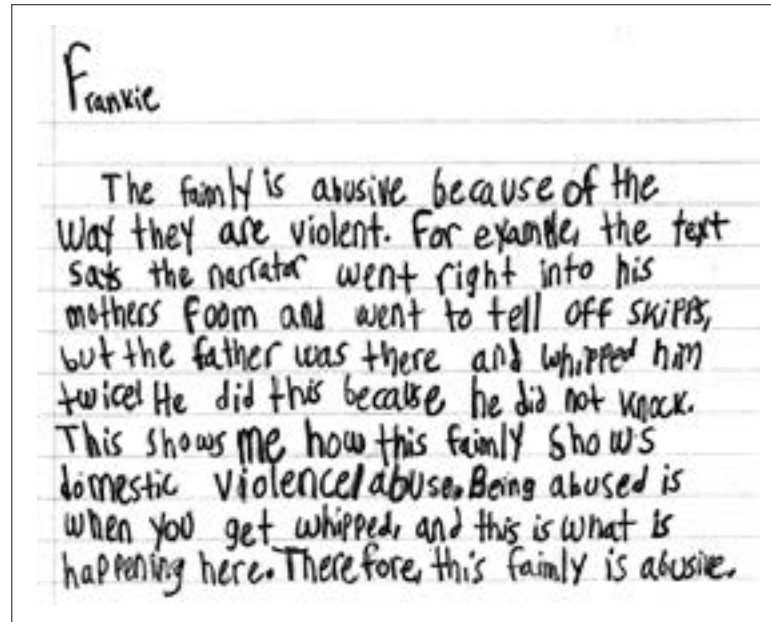 Frankie
The faimly is abusive because of the
way they are violent. For example, the text
says the narrator went right into his
mothers room and went to tell off skipps,
but the father was there and whipped him
twice! He did this because he did not knock.
This shows me how this faimly shows
domestic violence/abuse. Being abused is
when you get whipped, and this is what is
happening here. Therefore, this faimly is abusive.